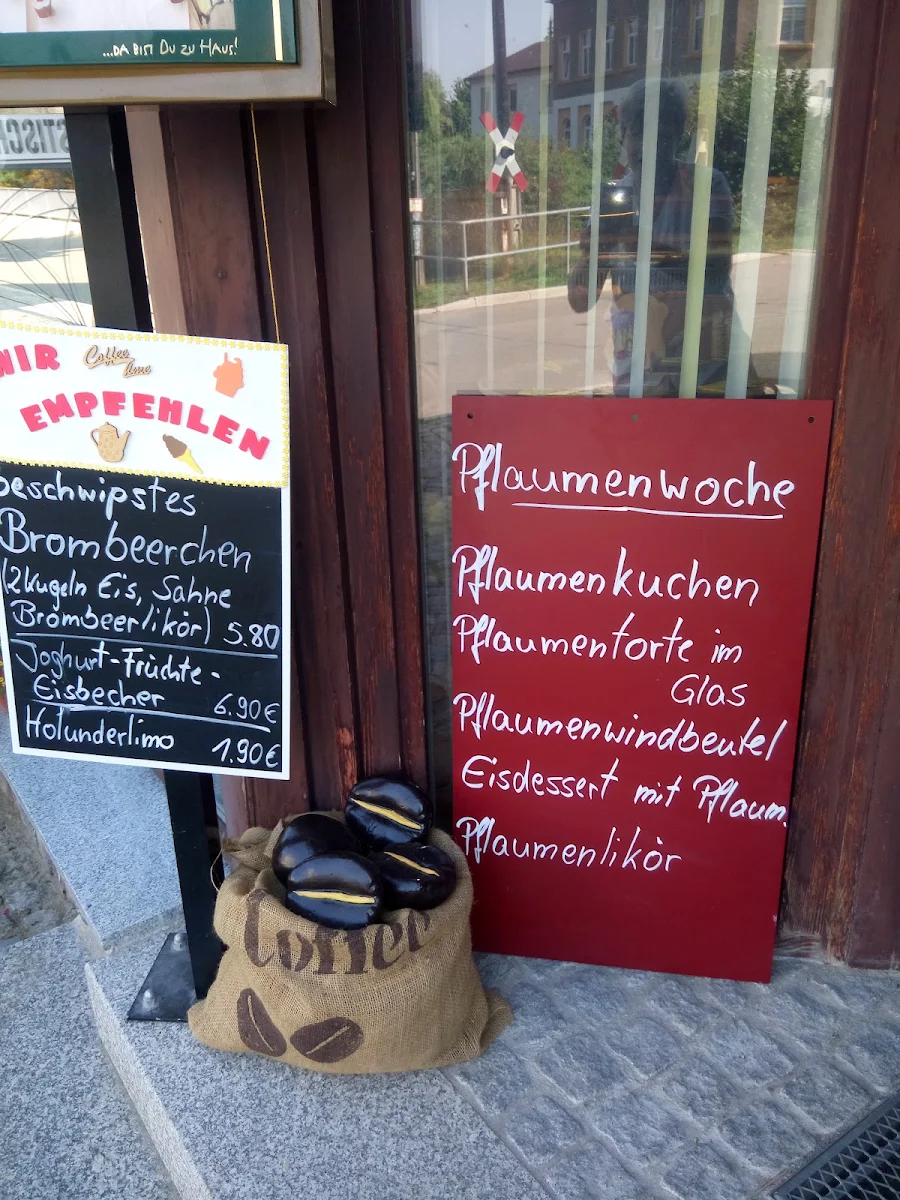 ...DA BIST DU ZU HAUS!
WIR
Coffee
time
EMPFEHLEN
beschwipstes
Brombeerchen
(2 Kugeln Eis, Sahne
Brombeerlikör) 5.80
Joghurt-Früchte-
Eisbecher 6.90€
Holunderlimo 1.90€
Pflaumenwoche
Pflaumenkuchen
Pflaumentorte im
Glas
Pflaumenwindbeutel
Eisdessert mit Pflaum.
Pflaumenlikör
Coffee